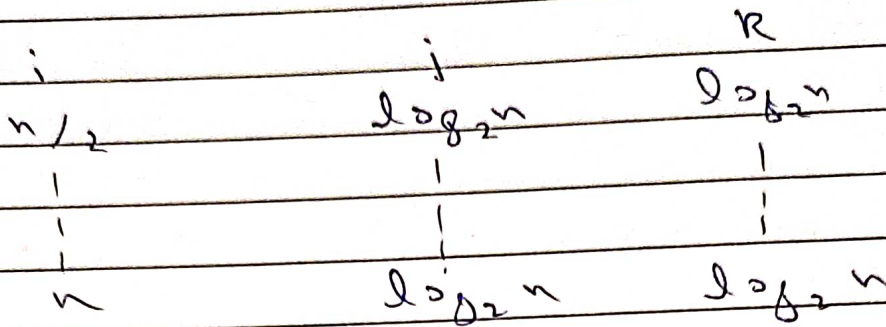 i j K
n/2 log₂n log₂n
| | |
| | |
| | |
n log₂n log₂n